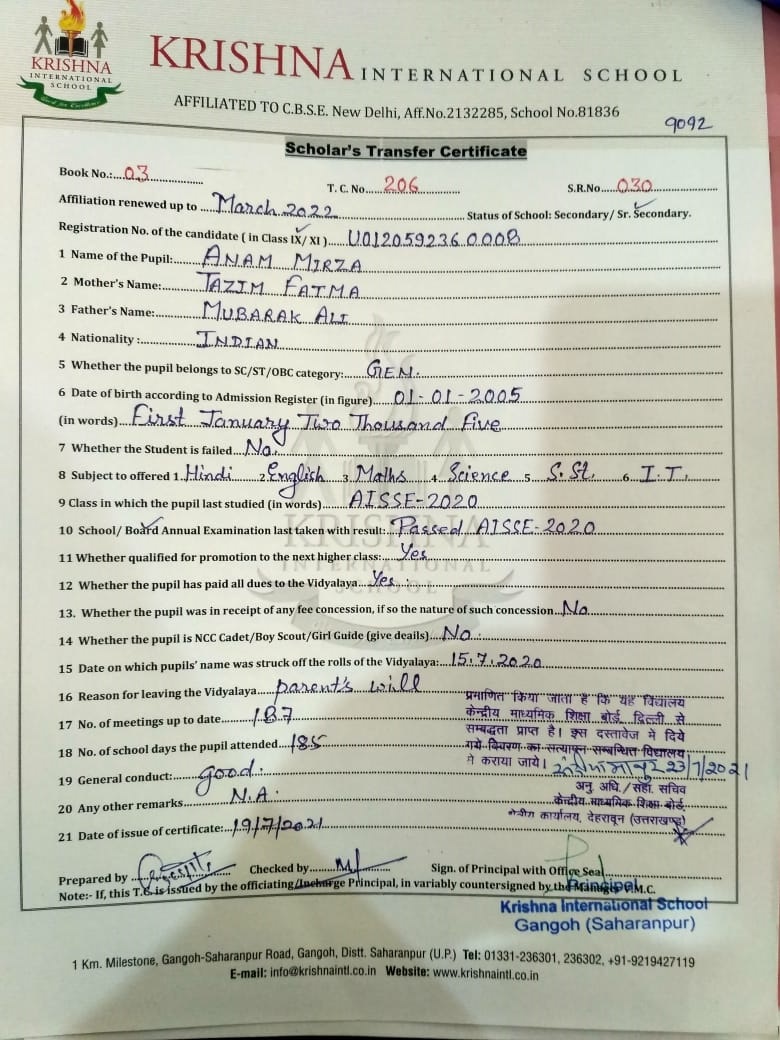 KRISHNA
INTERNATIONAL
SCHOOL
KRISHNA INTERNATIONAL SCHOOL
AFFILIATED TO C.B.S.E. New Delhi, Aff.No.2132285, School No.81836
9092
Scholar's Transfer Certificate
Book No.:....03.... T.C. No....206.... S.R.No....030....
Affiliation renewed up to....March 2022.... Status of School: Secondary/ Sr. Secondary.
Registration No. of the candidate ( in Class IX/ XI )....U0120592360008
1 Name of the Pupil:....ANAM MIRZA
2 Mother's Name:....TAZIM FATMA
3 Father's Name:....MUBARAK ALI
4 Nationality :....INDIAN
5 Whether the pupil belongs to SC/ST/OBC category:....GEN.
6 Date of birth according to Admission Register (in figure)....01-01-2005
(in words)....First January Two Thousand Five
7 Whether the Student is failed....No.
8 Subject to offered 1.Hindi 2 English 3 Maths 4 Science 5 S.St. 6 I.T.
9 Class in which the pupil last studied (in words)....AISSE-2020
10 School/ Board Annual Examination last taken with result:.Passed AISSE-2020
11 Whether qualified for promotion to the next higher class:....Yes
12 Whether the pupil has paid all dues to the Vidyalaya....Yes.
13. Whether the pupil was in receipt of any fee concession, if so the nature of such concession...No
14 Whether the pupil is NCC Cadet/Boy Scout/Girl Guide (give deails)....No.
15 Date on which pupils' name was struck off the rolls of the Vidyalaya:...15.7.2020
16 Reason for leaving the Vidyalaya....parent's will
17 No. of meetings up to date....187
18 No. of school days the pupil attended....185
19 General conduct:....good.
20 Any other remarks....N.A.
21 Date of issue of certificate:..19/7/2021
प्रमाणित किया जाता है कि यह विद्यालय
केन्द्रीय माध्यमिक शिक्षा बोर्ड, दिल्ली से
सम्बद्धता प्राप्त है। इस दस्तावेज में दिये
गये विवरण का सत्यापन सम्बन्धित विद्यालय
से कराया जाये। 23/7/2021
अनु अधि./सहा. सचिव
केन्द्रीय माध्यमिक शिक्षा बोर्ड,
क्षेत्रीय कार्यालय, देहरादून (उत्तराखण्ड)
Prepared by Checked by Sign. of Principal with Office Seal
Note:- If, this T.C. is issued by the officiating/Incharge Principal, in variably countersigned by the Manager V.M.C.
Principal
Krishna International School
Gangoh (Saharanpur)
1 Km. Milestone, Gangoh-Saharanpur Road, Gangoh, Distt. Saharanpur (U.P.) Tel: 01331-236301, 236302, +91-9219427119
E-mail: info@krishnaintl.co.in Website: www.krishnaintl.co.in